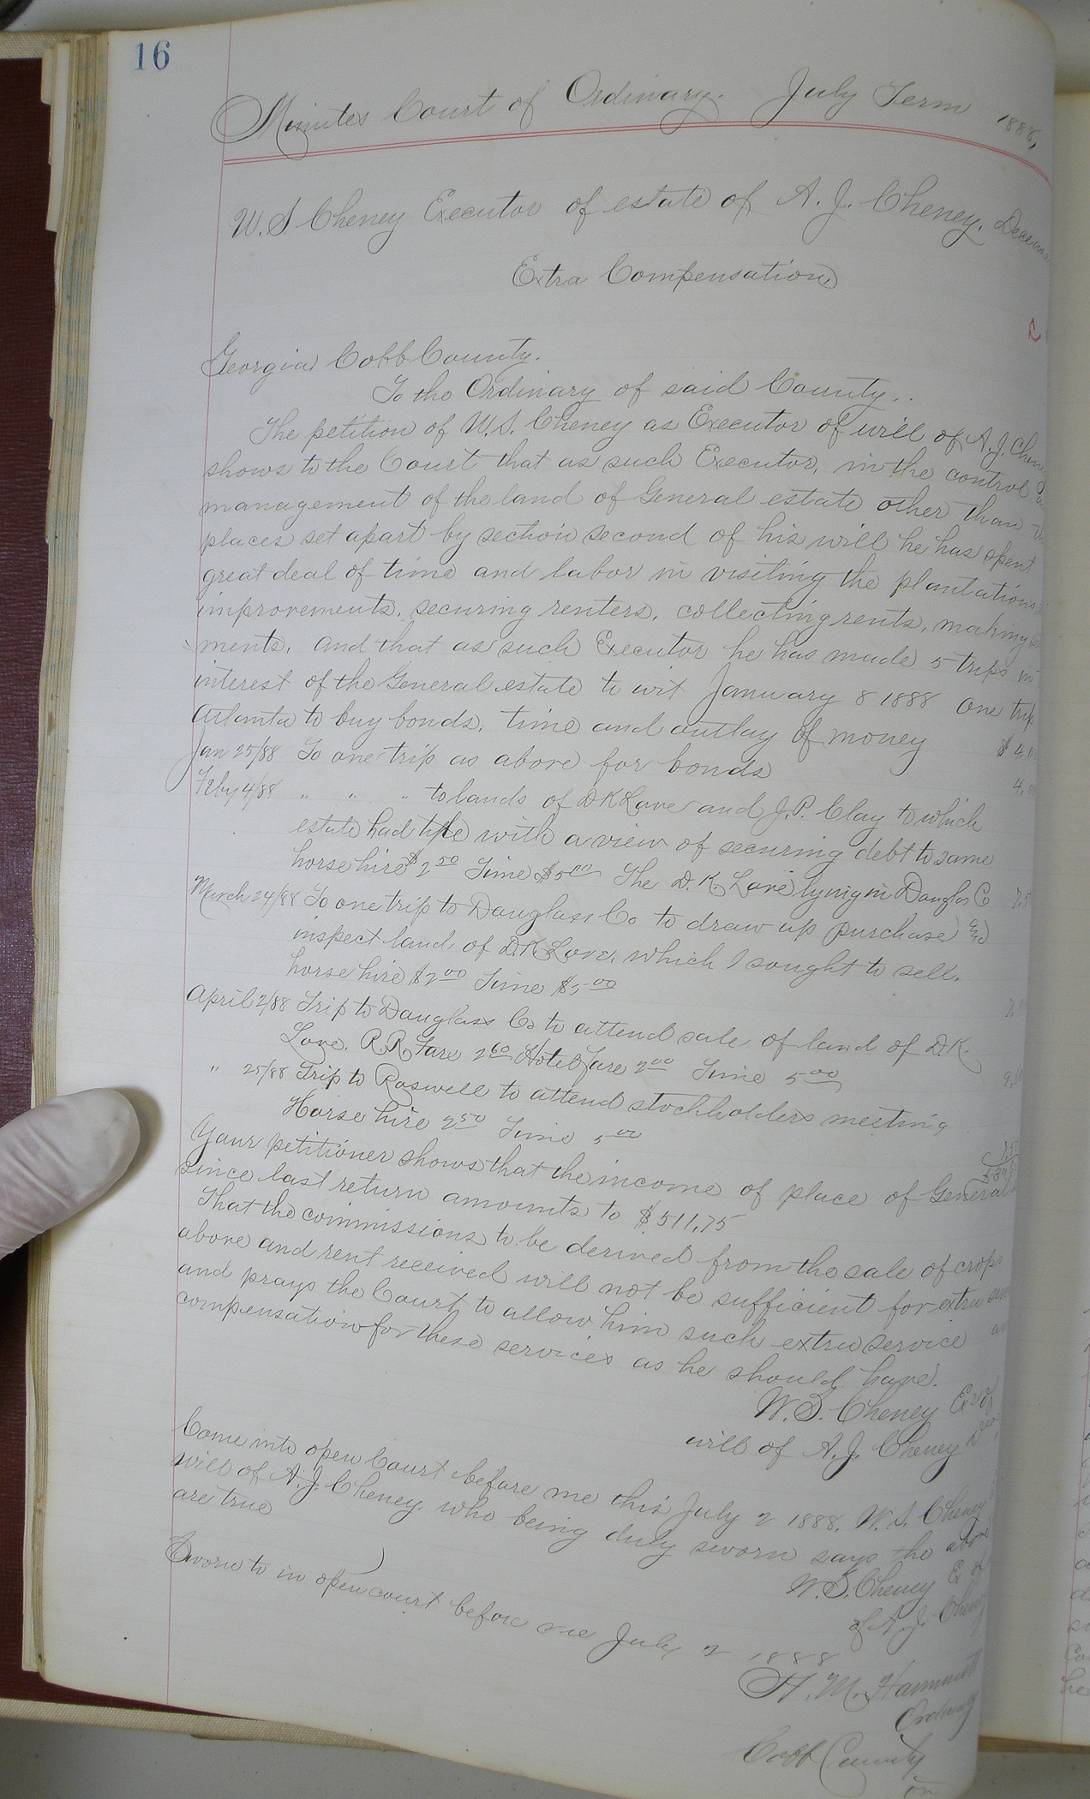 16
Minutes Court of Ordinary. July Term 1888,
W. S Cheney Executor of estate of A. J. Cheney,
Extra Compensation
Georgia Cobb County.
To the Ordinary of said County..
The petition of W. S. Cheney as Executor of will of A. J.
shows to the Court that as such Executor, in the control
management of the land of General estate other than
places set apart by section second of his will he has spent
great deal of time and labor in visiting the plantations
improvements, securing renters, collecting rents, making
ments, and that as such Executor he has made 5 trips in
interest of the General estate to wit January 8 1888 One trip
Atlanta to buy bonds, time and outlay of money $ 4,
Jan 25/88 To one trip as above for bonds 4,
Feby 4/88 " " " to lands of D K Love and J. P. Clay to which
estate had title with a view of securing debt to same
horse hire $2 50 Time $5 00 The D. K. Love lying in Douglas Co 7,5
March 24/88 To one trip to Douglass Co to draw up purchase and
inspect land, of D. K Love, which I sought to sell,
horse hire $2 00 Time $5 00
April 2/88 Trip to Douglass Co to attend sale of land of D. K.
Love. R R Fare 2 60 Hotel fare 2 00 Time 5 00 9,
" 25/88 Trip to Roswell to attend stockholders meeting
Horse hire 2 50 Time 5 00
Your petitioner shows that the income of place of General
since last return amounts to $511,75
That the commissions to be derived from the sale of crops
above and rent received will not be sufficient for extra
and prays the Court to allow him such extra service
compensation for these services as he should have.
W. S. Cheney Ex of
will of A. J. Cheney
Came into open Court before me this July 2 1888, W. S. Cheney
will of A. J. Cheney, who being duly sworn says the above
are true
W. S. Cheney Ex of
of A. J.
Sworn to in open court before me July 2 1888
H. M. Hammett
Ordinary
Cobb County